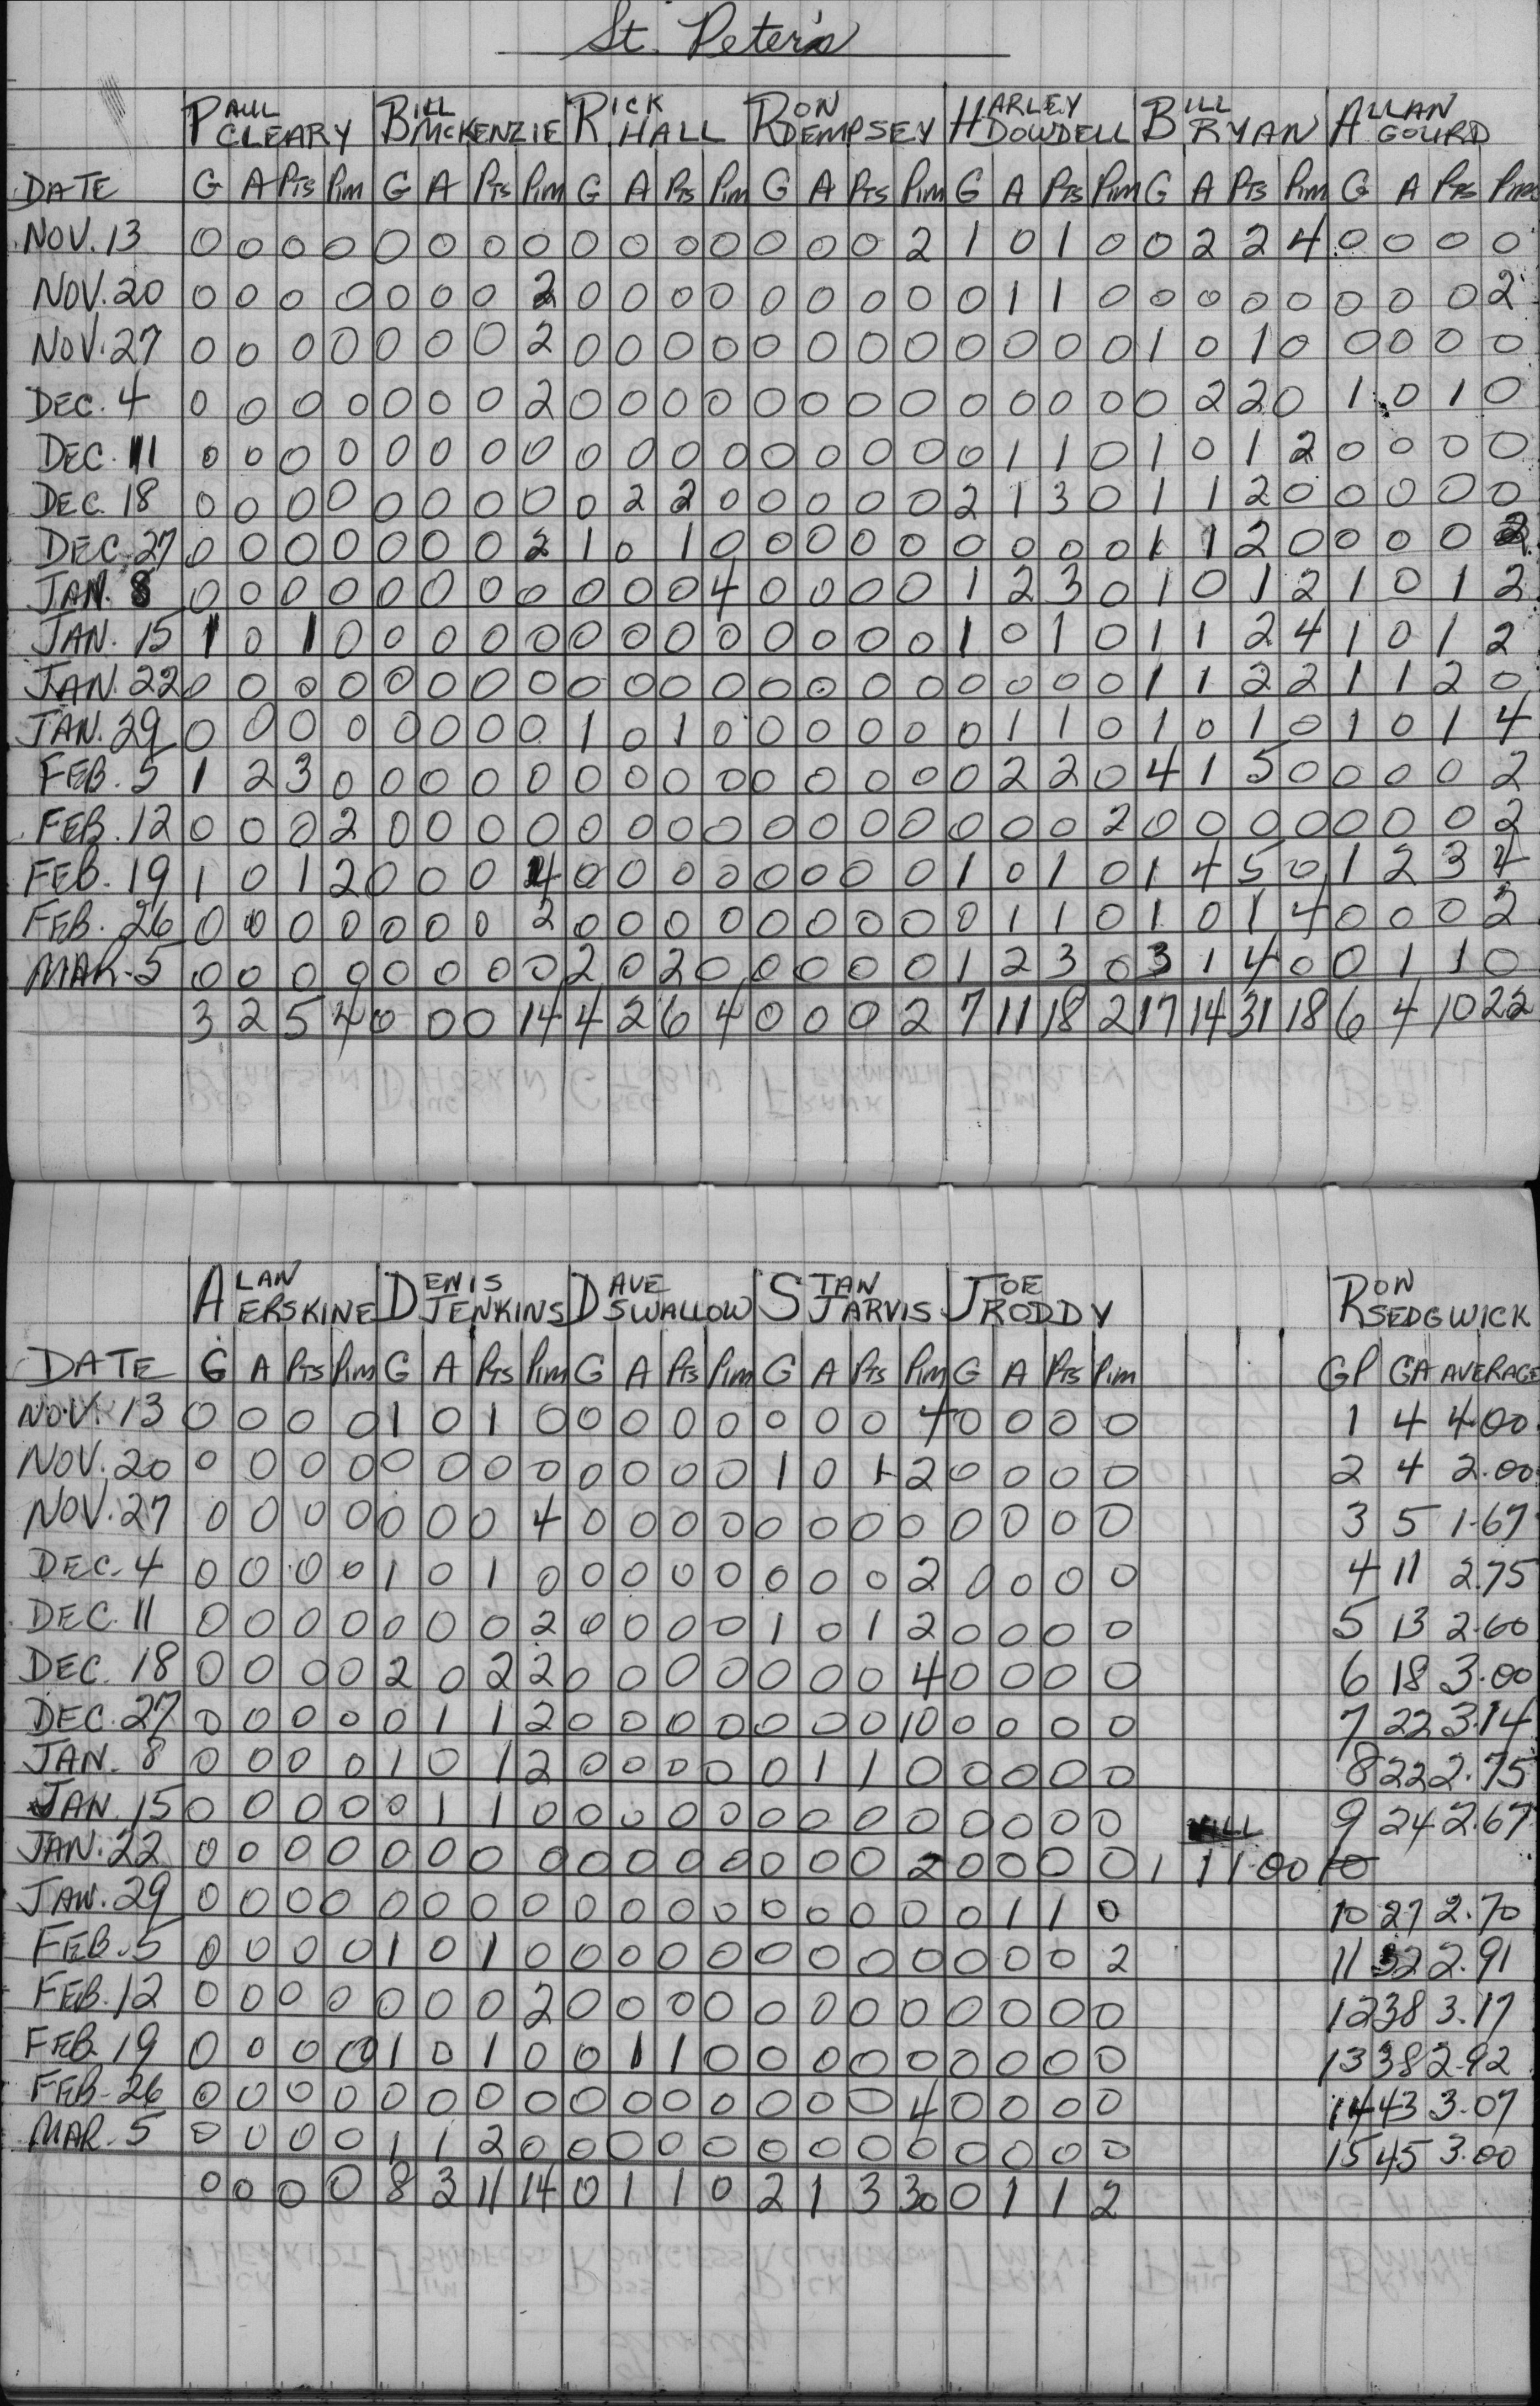 St. Peter's
PAUL CLEARY BILL MCKENZIE RICK HALL RON DEMPSEY HARLEY DOWDELL BILL RYAN ALLAN GOURD
DATE G A PTS PIM G A PTS PIM G A PTS PIM G A PTS PIM G A PTS PIM G A PTS PIM G A PTS PIM
NOV. 13 0 0 0 0 0 0 0 0 0 0 0 0 0 0 0 2 1 0 1 0 0 2 2 4 0 0 0 0
NOV. 20 0 0 0 0 0 0 0 2 0 0 0 0 0 0 0 0 0 1 1 0 0 0 0 0 0 0 0 2
NOV. 27 0 0 0 0 0 0 0 2 0 0 0 0 0 0 0 0 0 0 0 0 1 0 1 0 0 0 0 0
DEC. 4 0 0 0 0 0 0 0 2 0 0 0 0 0 0 0 0 0 0 0 0 0 2 2 0 1 0 1 0
DEC. 11 0 0 0 0 0 0 0 0 0 0 0 0 0 0 0 0 0 1 1 0 1 0 1 2 0 0 0 0
DEC. 18 0 0 0 0 0 0 0 0 0 2 2 0 0 0 0 0 2 1 3 0 1 1 2 0 0 0 0 0
DEC. 27 0 0 0 0 0 0 0 2 1 0 1 0 0 0 0 0 0 0 0 0 1 1 2 0 0 0 0 2
JAN. 8 0 0 0 0 0 0 0 0 0 0 0 4 0 0 0 0 1 2 3 0 1 0 1 2 1 0 1 2
JAN. 15 1 0 1 0 0 0 0 0 0 0 0 0 0 0 0 0 1 0 1 0 1 1 2 4 1 0 1 2
JAN. 22 0 0 0 0 0 0 0 0 0 0 0 0 0 0 0 0 0 0 0 0 1 1 2 2 1 1 2 0
JAN. 29 0 0 0 0 0 0 0 0 1 0 1 0 0 0 0 0 0 1 1 0 1 0 1 0 1 0 1 4
FEB. 5 1 2 3 0 0 0 0 0 0 0 0 0 0 0 0 0 0 2 2 0 4 1 5 0 0 0 0 2
FEB. 12 0 0 0 2 0 0 0 0 0 0 0 0 0 0 0 0 0 0 0 2 0 0 0 0 0 0 0 2
FEB. 19 1 0 1 2 0 0 0 4 0 0 0 0 0 0 0 0 1 0 1 0 1 4 5 0 1 2 3 4
FEB. 26 0 0 0 0 0 0 0 2 0 0 0 0 0 0 0 0 0 1 1 0 1 0 1 4 0 0 0 2
MAR. 5 0 0 0 0 0 0 0 0 2 0 2 0 0 0 0 0 1 2 3 0 3 1 4 0 0 1 1 0
3 2 5 4 0 0 0 14 4 2 6 4 0 0 0 2 7 11 18 2 17 14 31 18 6 4 10 22
ALAN ERSKINE DENIS JENKINS DAVE SWALLOW STAN JARVIS JOE RODDY RON SEDGWICK
DATE G A PTS PIM G A PTS PIM G A PTS PIM G A PTS PIM G A PTS PIM GP GA AVERAGE
NOV. 13 0 0 0 0 1 0 1 0 0 0 0 0 0 0 0 4 0 0 0 0 1 4 4.00
NOV. 20 0 0 0 0 0 0 0 0 0 0 0 0 1 0 1 2 0 0 0 0 2 4 2.00
NOV. 27 0 0 0 0 0 0 0 4 0 0 0 0 0 0 0 0 0 0 0 0 3 5 1.67
DEC. 4 0 0 0 0 1 0 1 0 0 0 0 0 0 0 0 2 0 0 0 0 4 11 2.75
DEC. 11 0 0 0 0 0 0 0 2 0 0 0 0 1 0 1 2 0 0 0 0 5 13 2.60
DEC. 18 0 0 0 0 2 0 2 2 0 0 0 0 0 0 0 4 0 0 0 0 6 18 3.00
DEC. 27 0 0 0 0 0 1 1 2 0 0 0 0 0 0 0 10 0 0 0 0 7 22 3.14
JAN. 8 0 0 0 0 1 0 1 2 0 0 0 0 0 1 1 0 0 0 0 0 8 22 2.75
JAN. 15 0 0 0 0 0 1 1 0 0 0 0 0 0 0 0 0 0 0 0 0 9 24 2.67
JAN. 22 0 0 0 0 0 0 0 0 0 0 0 0 0 0 0 2 0 0 0 0 1 1 1.00 10
JAN. 29 0 0 0 0 0 0 0 0 0 0 0 0 0 0 0 0 0 1 1 0 10 27 2.70
FEB. 5 0 0 0 0 1 0 1 0 0 0 0 0 0 0 0 0 0 0 0 2 11 32 2.91
FEB. 12 0 0 0 0 0 0 0 2 0 0 0 0 0 0 0 0 0 0 0 0 12 38 3.17
FEB. 19 0 0 0 0 1 0 1 0 0 1 1 0 0 0 0 0 0 0 0 0 13 38 2.92
FEB. 26 0 0 0 0 0 0 0 0 0 0 0 0 0 0 0 4 0 0 0 0 14 43 3.07
MAR. 5 0 0 0 0 1 1 2 0 0 0 0 0 0 0 0 0 0 0 0 0 15 45 3.00
0 0 0 0 8 3 11 14 0 1 1 0 2 1 3 30 0 1 1 2